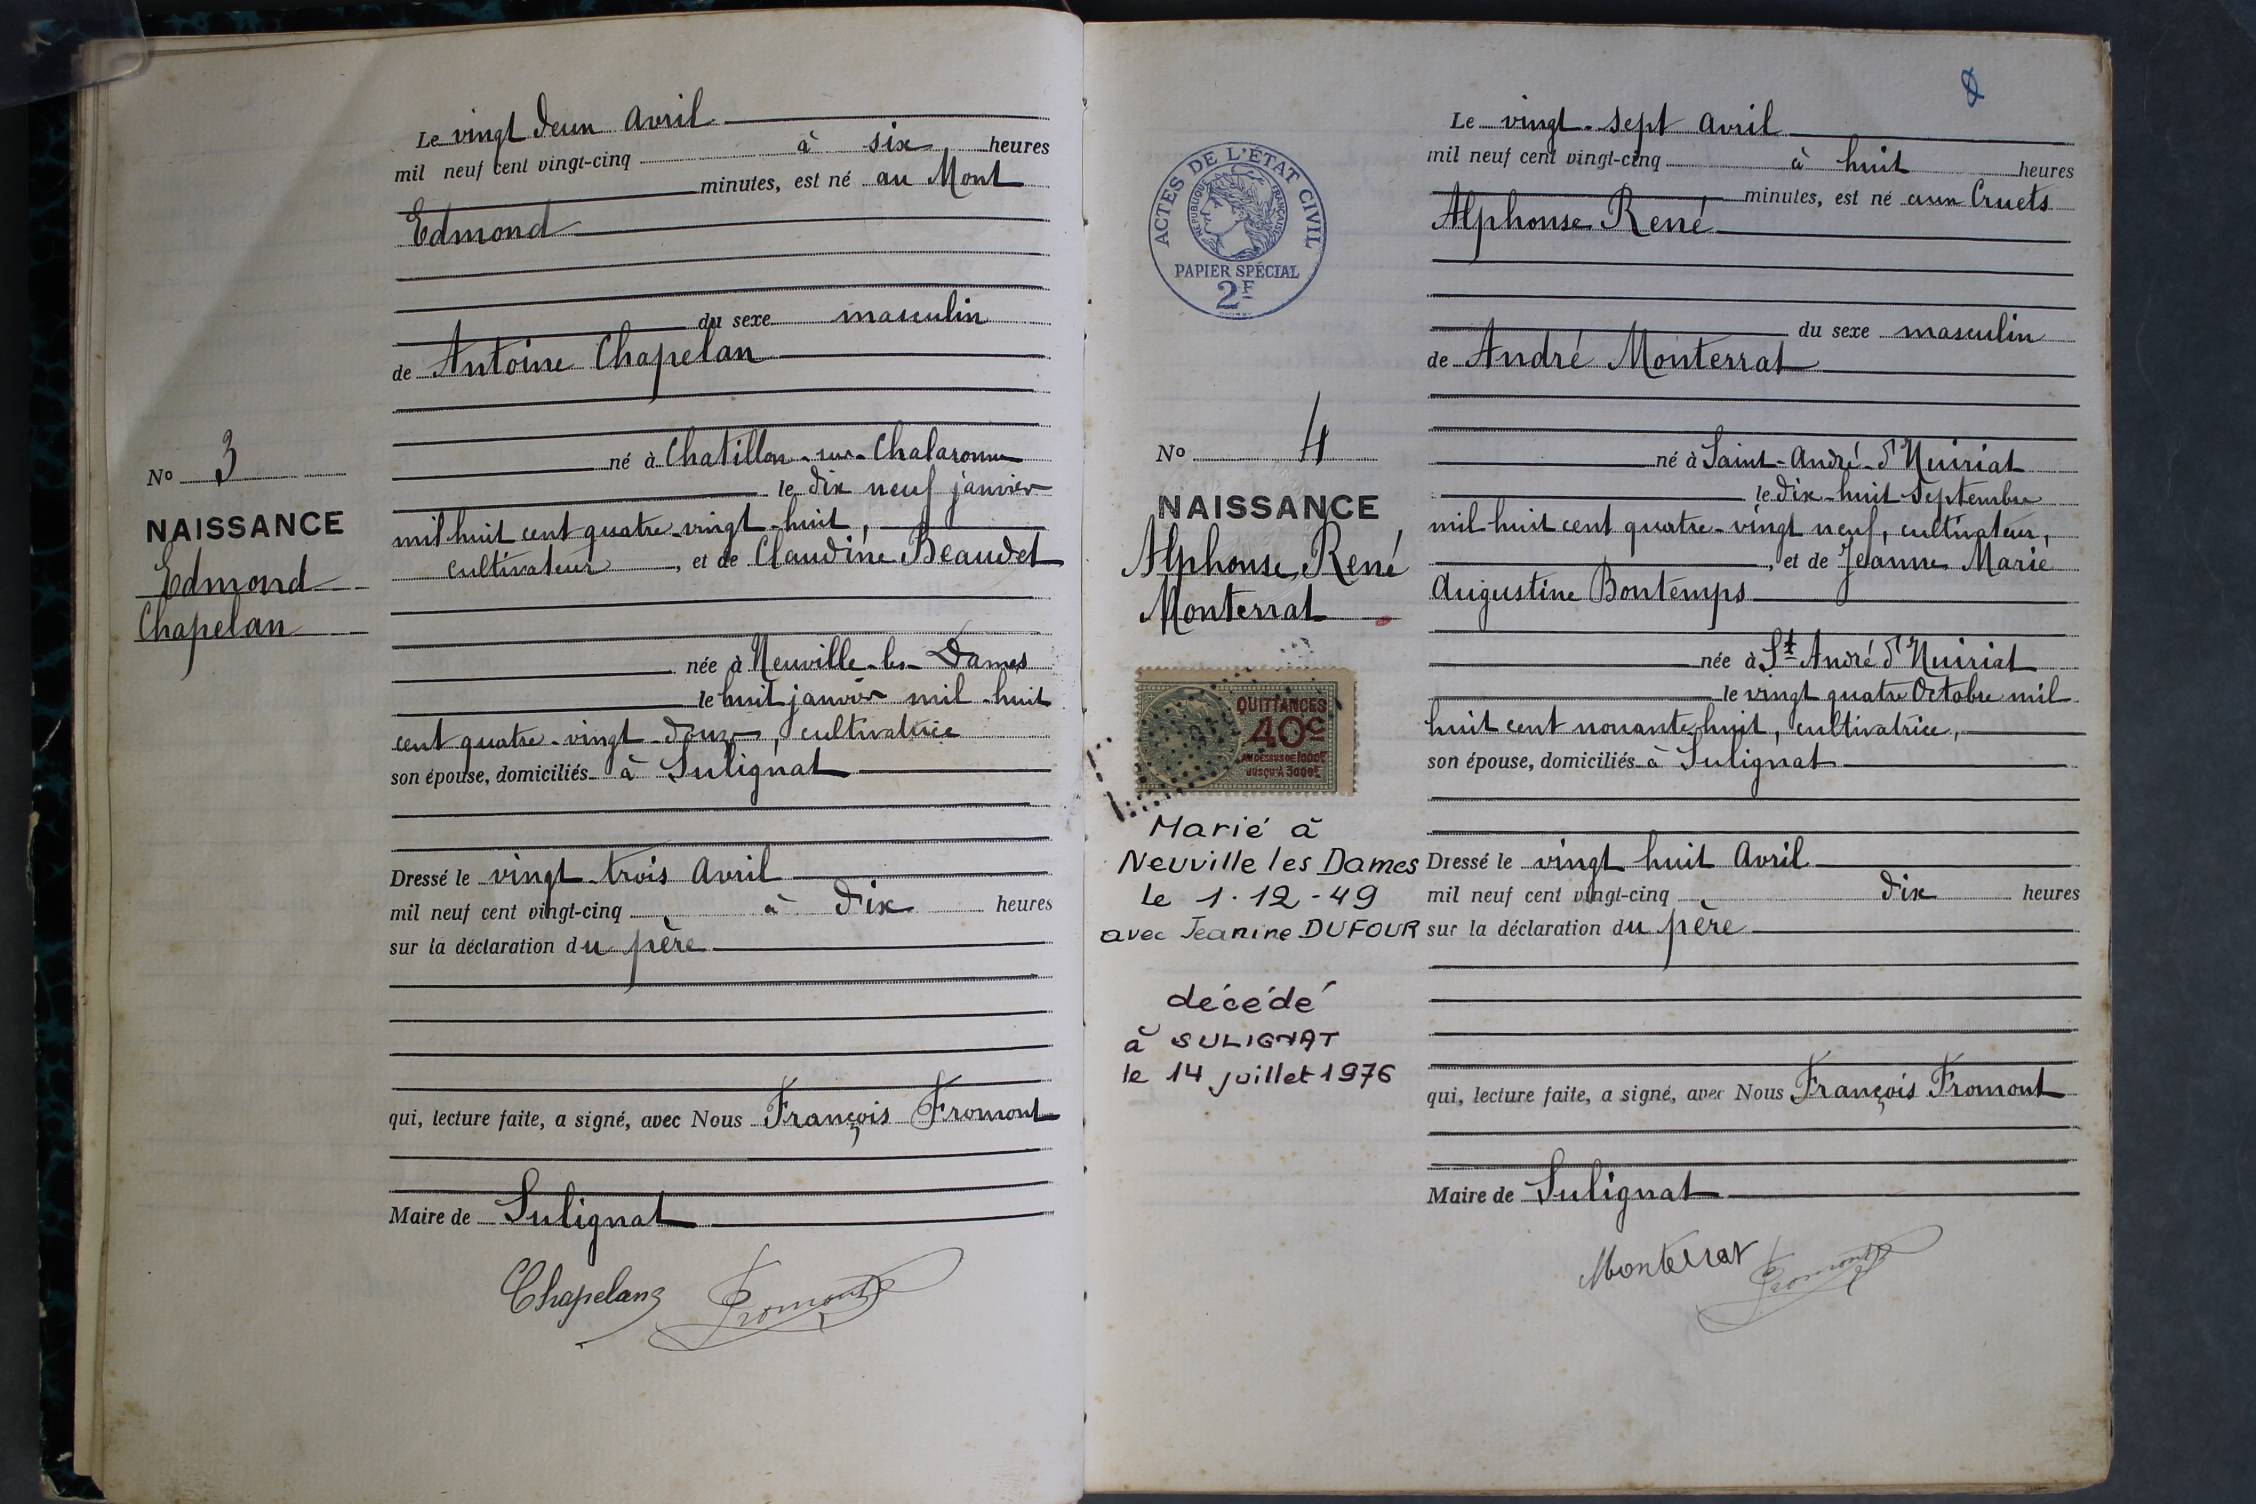 Le vingt deux avril
mil neuf cent vingt-cinq à six heures
minutes, est né au Mont
Edmond
du sexe masculin
de Antoine Chapelan
né à Chatillon-sur-Chalaronne
le dix neuf janvier
mil huit cent quatre-vingt-huit,
cultivateur, et de Claudine Beaudet
née à Neuville-les-Dames
le huit janvier mil-huit
cent quatre-vingt-douze, cultivatrice
son épouse, domiciliés à Sulignat
Dressé le vingt-trois avril
mil neuf cent vingt-cinq à dix heures
sur la déclaration du père
qui, lecture faite, a signé, avec Nous François Fromont
Maire de Sulignat
Chapelan Fromont
No 3
NAISSANCE
Edmond
Chapelan
ACTES DE L'ÉTAT CIVIL
RÉPUBLIQUE FRANÇAISE
PAPIER SPÉCIAL
2F
No 4
NAISSANCE
Alphonse René
Monterrat
QUITTANCES
40c
AU DESSUS DE 1000F
JUSQU'À 3000F
Marié à
Neuville les Dames
le 1-12-49
avec Jeanine DUFOUR
décédé
à SULIGNAT
le 14 juillet 1976
Le vingt-sept avril
mil neuf cent vingt-cinq à huit heures
minutes, est né aux Cruets
Alphonse René
du sexe masculin
de André Monterrat
né à Saint-André-d'Huiriat
le dix-huit Septembre
mil huit cent quatre-vingt neuf, cultivateur,
, et de Jeanne Marie
Augustine Bontemps
née à St André d'Huiriat
le vingt quatre Octobre mil
huit cent nonante-huit, cultivatrice,
son épouse, domiciliés à Sulignat
Dressé le vingt huit Avril
mil neuf cent vingt-cinq dix heures
sur la déclaration du père
qui, lecture faite, a signé, avec Nous François Fromont
Maire de Sulignat
Monterrat Fromont